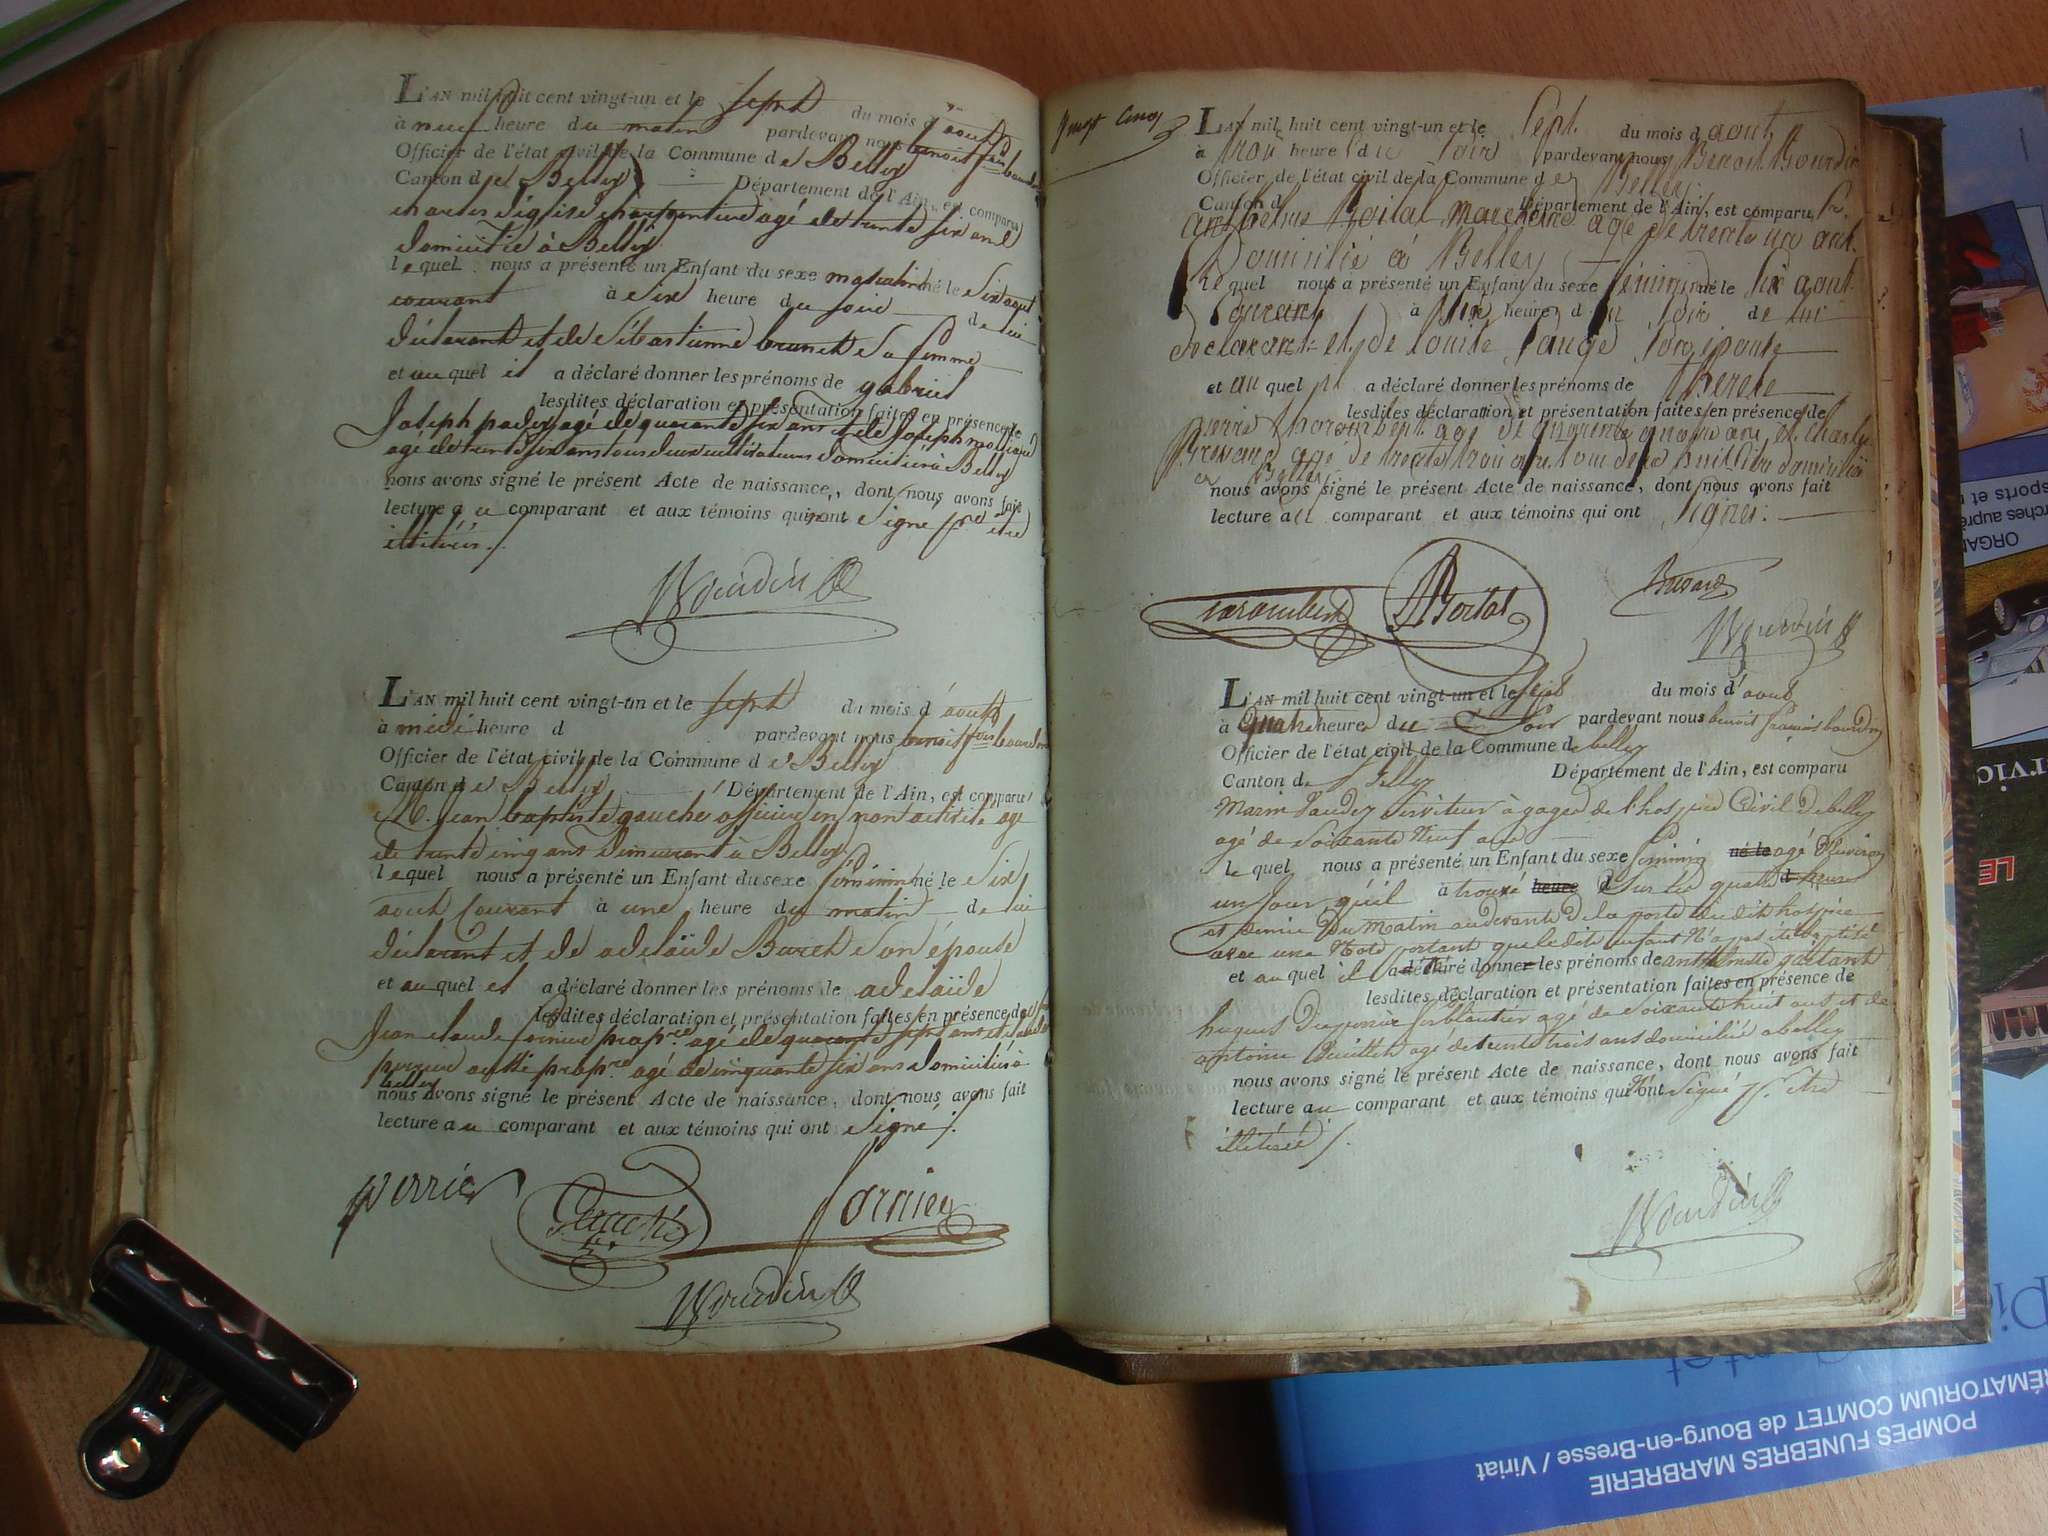 L'AN mil huit cent vingt-un et le sept du mois d'aout
à neuf heure du matin pardevant nous benoit fois bourdin
Officier de l'état civil de la Commune de Belley
Canton de Belley Département de l'Ain, est comparu
charles d'église charpentier agé de trente six ans
domicilié à Belley
lequel nous a présenté un Enfant du sexe masculin né le six aout
courant à six heure du soir de lui
déclarant et de Sébastienne brunet sa femme
et auquel il a déclaré donner les prénoms de gabriel
lesdites déclaration et présentation faites en présence de
Joseph agé de quarante six ans et de Joseph
agé de trente six ans tous deux cultivateurs domiciliés à Belley
nous avons signé le présent Acte de naissance, dont nous avons fait
lecture au comparant et aux témoins qui n'ont signé pr. être
illitérés ./.
Bourdin
L'AN mil huit cent vingt-un et le sept du mois d'aout
à midi heure d pardevant nous benoit fois bourdin
Officier de l'état civil de la Commune de Belley
Canton de Belley Département de l'Ain, est comparu
M. Jean baptiste gauché officier en non activité agé
de trente cinq ans demeurant à Belley
lequel nous a présenté un Enfant du sexe féminin né le six
aout courant à une heure du matin de lui
déclarant et de adelaïde son épouse
et auquel il a déclaré donner les prénoms de adelaïde
lesdites déclaration et présentation faites en présence de
Jean claude fornier propre agé de quarante sept ans et
perrier aussi propre agé de cinquante six ans domiciliés à
belley
nous avons signé le présent Acte de naissance, dont nous avons fait
lecture au comparant et aux témoins qui ont signé ./.
perrier
Gauché
fornier
Bourdin
Vingt Cinq
L'AN mil huit cent vingt-un et le Sept. du mois d aout
à trois heure du soir pardevant nous Benoit Bourdin
Officier de l'état civil de la Commune de Belley
Canton d Département de l'Ain, est comparu Sr.
anthelme Boital marchand agé de trente un ans
Domicilié à Belley
lequel nous a présenté un Enfant du sexe féminin né le six aout
Courant à heure du soir de lui
déclarant et de louise Sauge son épouse
et auquel il a déclaré donner les prénoms de Therese
lesdites déclaration et présentation faites en présence de
pierre agé de quarante quatre ans et Charles
Brevard agé de trente trois ans tous deux domiciliés
à Belley
nous avons signé le présent Acte de naissance, dont nous avons fait
lecture au comparant et aux témoins qui ont signés.
Boital
Brevard
Bourdin
L'AN mil huit cent vingt-un et le sept du mois d'aout
à quatre heure du soir pardevant nous benoit françois bourdin
Officier de l'état civil de la Commune de belley
Canton de Belley Département de l'Ain, est comparu
Marin Serviteur à gages de l'hospice Civil de belley
agé de soixante neuf ans
lequel nous a présenté un Enfant du sexe féminin né le agé d'environ
un jour qu'il à trouvé heure d sur les quatre heures
et demie du matin audevant de la porte dudit hospice
avec une Note portant que ledit enfant n'a pas été baptisé
et auquel il a été déclaré donner les prénoms de
lesdites déclaration et présentation faites en présence de
hugues ferblantier agé de soixante huit ans et de
antoine agé de trente trois ans domiciliés a belley
nous avons signé le présent Acte de naissance, dont nous avons fait
lecture au comparant et aux témoins qui n'ont signé pr. être
illitérés ./.
Bourdin
ORGAN
LE
POMPES FUNEBRES MARBRERIE
RÉMATORIUM COMTET de Bourg-en-Bresse / Viriat